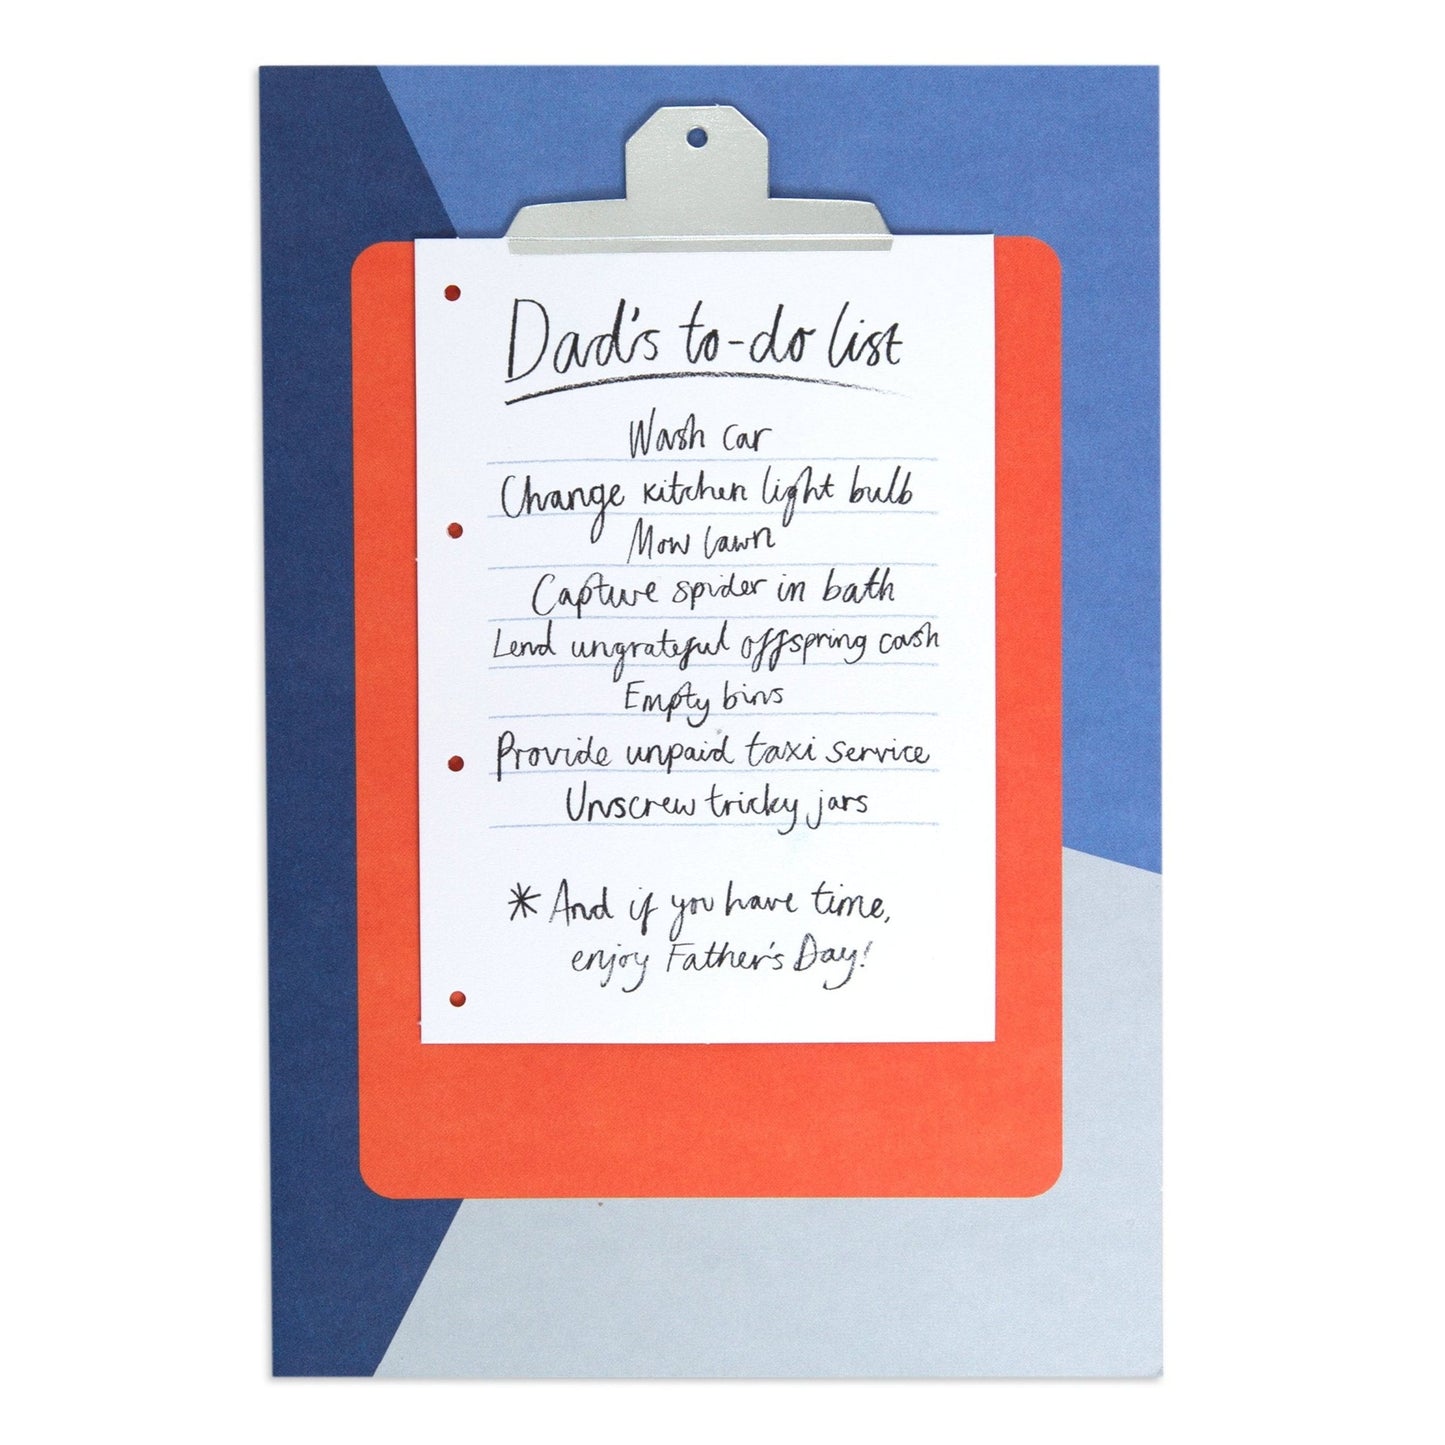 Dad's to-do list
Wash car
Change kitchen light bulb
Mow lawn
Capture spider in bath
Lend ungrateful offspring cash
Empty bins
Provide unpaid taxi service
Unscrew tricky jars
* And if you have time,
enjoy Father's Day!